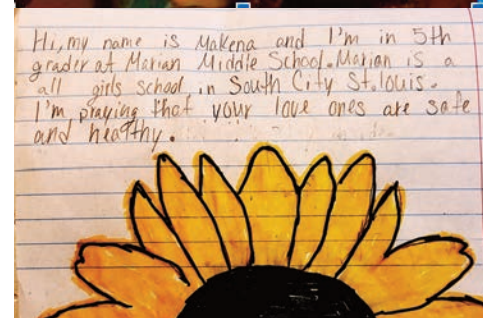 Hi, my name is Makena and I'm in 5th
grader at Marian Middle School. Marian is a
all girls school, in South City St. louis.
I'm praying that your love ones are safe
and healthy.